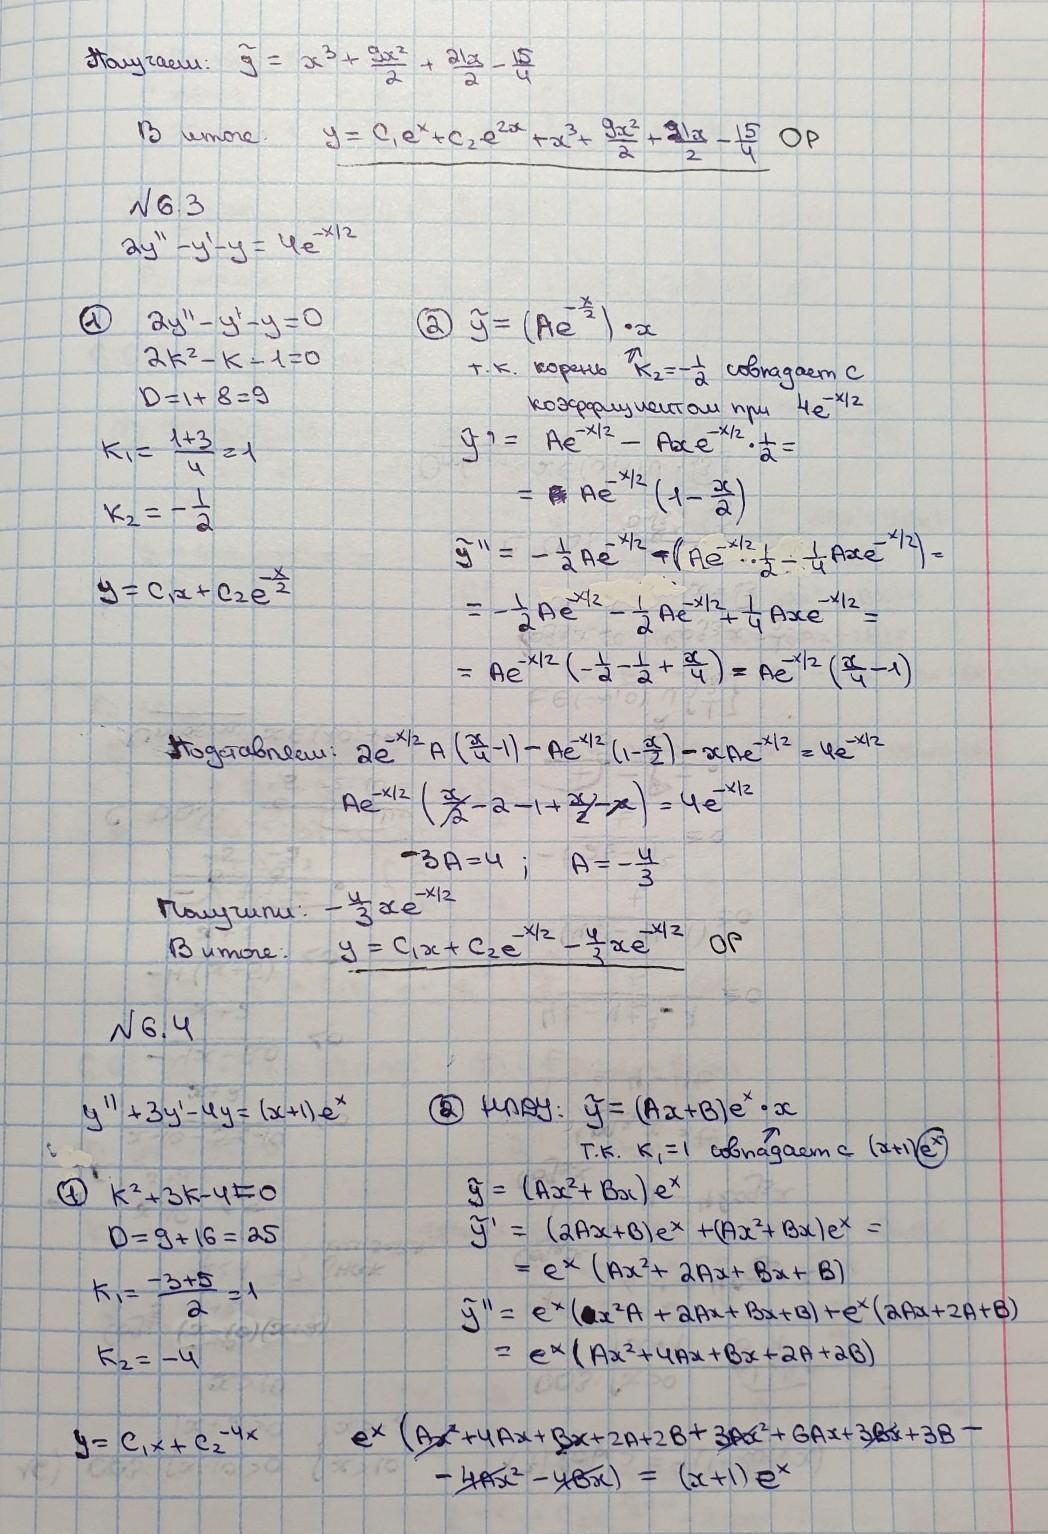 Получаем: ỹ = x³ + 9x²/2 + 21x/2 - 15/4
В итоге: y = C₁eˣ + C₂e²ˣ + x³ + 9x²/2 + 21x/2 - 15/4 ОР
№6.3
2y'' - y' - y = 4e^(-x/2)
① 2y'' - y' - y = 0
2k² - k - 1 = 0
D = 1 + 8 = 9
k₁ = (1+3)/4 = 1
k₂ = -1/2
y = C₁x + C₂e^(-x/2)
② ỹ = (Ae^(-x/2))·x
т.к. корень k₂ = -1/2 совпадает с
коэффициентом при 4e^(-x/2)
ỹ' = Ae^(-x/2) - Axe^(-x/2)·1/2 =
= Ae^(-x/2) (1 - x/2)
ỹ'' = -1/2 Ae^(-x/2) - (Ae^(-x/2)·1/2 - 1/4 Axe^(-x/2)) =
= -1/2 Ae^(-x/2) - 1/2 Ae^(-x/2) + 1/4 Axe^(-x/2) =
= Ae^(-x/2) (-1/2 - 1/2 + x/4) = Ae^(-x/2) (x/4 - 1)
Подставляем: 2e^(-x/2) A (x/4 - 1) - Ae^(-x/2) (1 - x/2) - xAe^(-x/2) = 4e^(-x/2)
Ae^(-x/2) (x/2 - 2 - 1 + x/2 - x) = 4e^(-x/2)
-3A = 4 ; A = -4/3
Получили: -4/3 xe^(-x/2)
В итоге: y = C₁x + C₂e^(-x/2) - 4/3 xe^(-x/2) ОР
№6.4
y'' + 3y' - 4y = (x+1)eˣ
① k² + 3k - 4 = 0
D = 9 + 16 = 25
k₁ = (-3+5)/2 = 1
k₂ = -4
y = C₁x + C₂^(-4x)
② НЛДУ: ỹ = (Ax+B)eˣ·x
т.к. k₁ = 1 совпадает с (x+1)eˣ
ỹ = (Ax² + Bx)eˣ
ỹ' = (2Ax+B)eˣ + (Ax²+Bx)eˣ =
= eˣ (Ax² + 2Ax + Bx + B)
ỹ'' = eˣ (x²A + 2Ax + Bx + B) + eˣ (2Ax + 2A + B)
= eˣ (Ax² + 4Ax + Bx + 2A + 2B)
eˣ (Ax² + 4Ax + Bx + 2A + 2B + 3Ax² + 6Ax + 3Bx + 3B -
- 4Ax² - 4Bx) = (x+1)eˣ